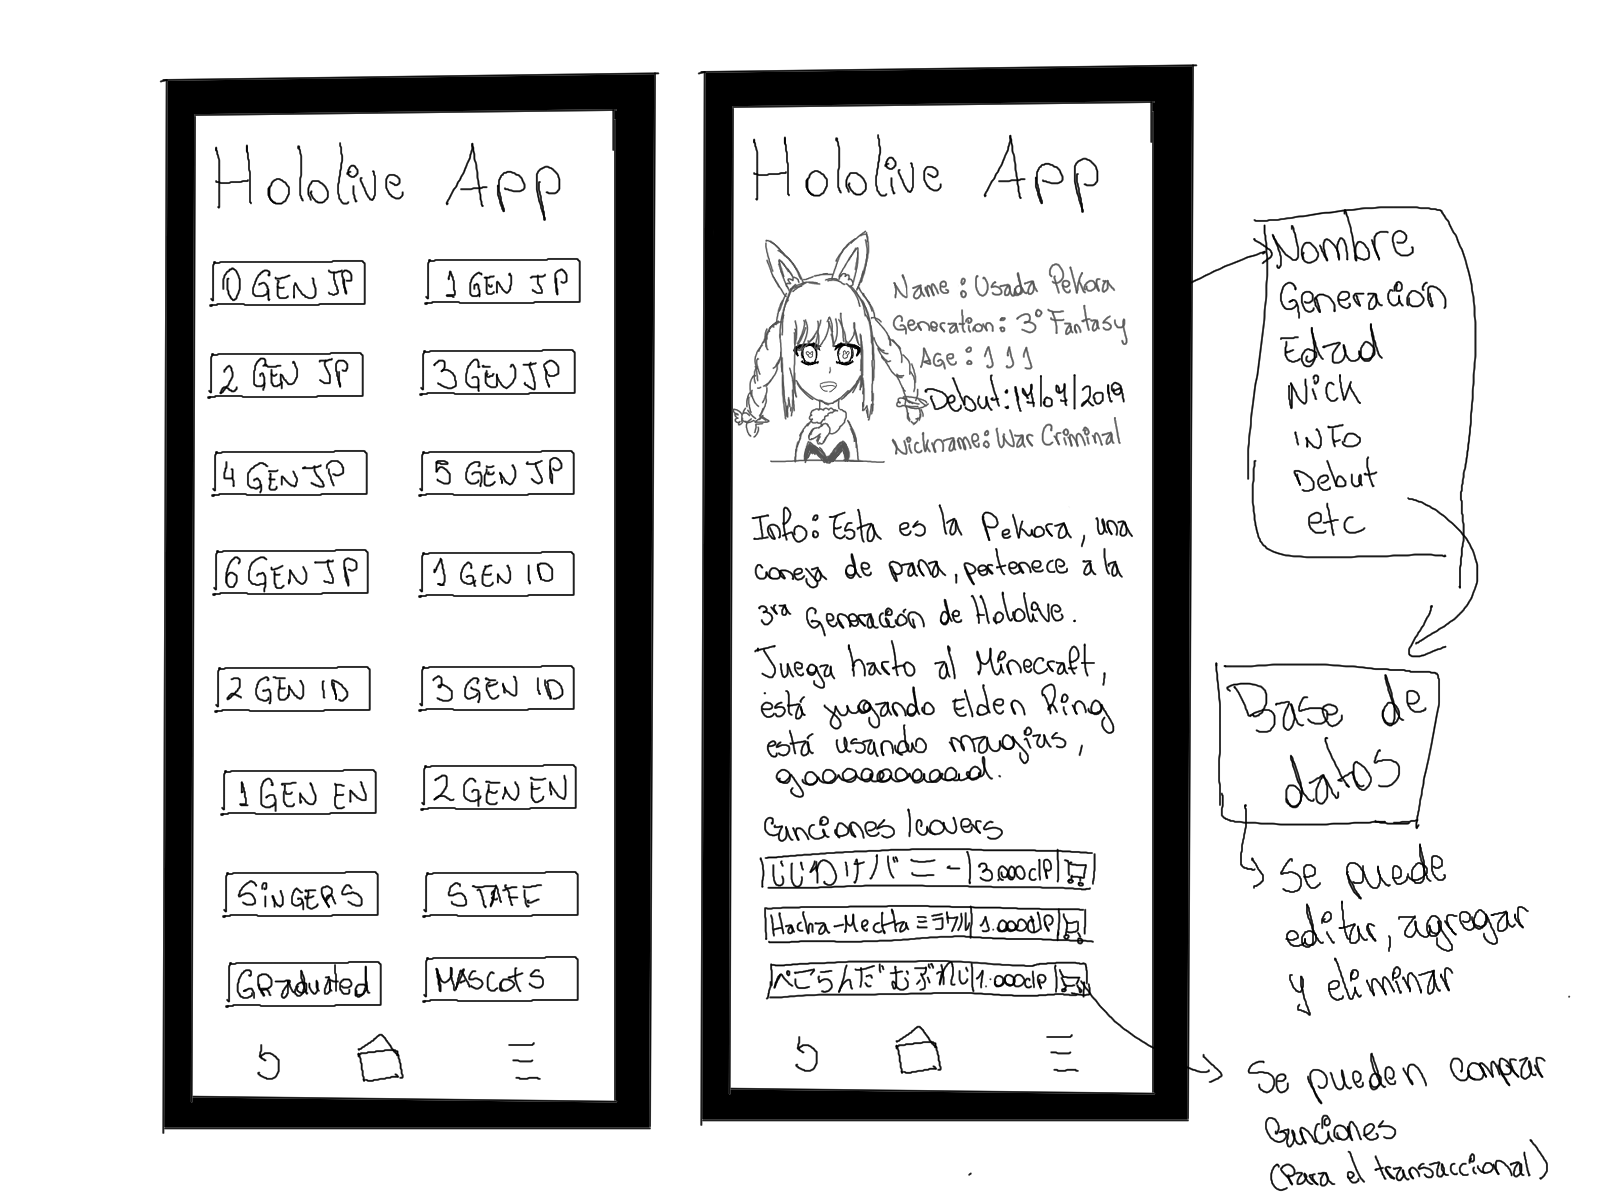 Hololive App
0 GEN JP
1 GEN JP
2 GEN JP
3 GEN JP
4 GEN JP
5 GEN JP
6 GEN JP
1 GEN ID
2 GEN ID
3 GEN ID
1 GEN EN
2 GEN EN
SiNGERS
STAFF
GRaduated
MAScotS
Hololive App
Name: Usada Pekora
Generation: 3° Fantasy
Age: 111
Debut: 17/07/2019
Nickname: War Criminal
Info: Esta es la Pekora, una
coneja de pana, pertenece a la
3ra Generación de Hololive.
Juega harto al Minecraft,
está jugando Elden Ring
está usando magias,
gaaaaaaaaaad.
Canciones /covers
じじわけバニー 3.000clP
Hacha-Mecha ミラクル 1.000clP
ぺこらんだむぶれいじ 1.000clP
Nombre
Generación
Edad
Nick
INFo
Debut
etc
Base de
datos
Se puede
editar, agregar
y eliminar
Se pueden comprar
Canciones
(Para el transaccional)